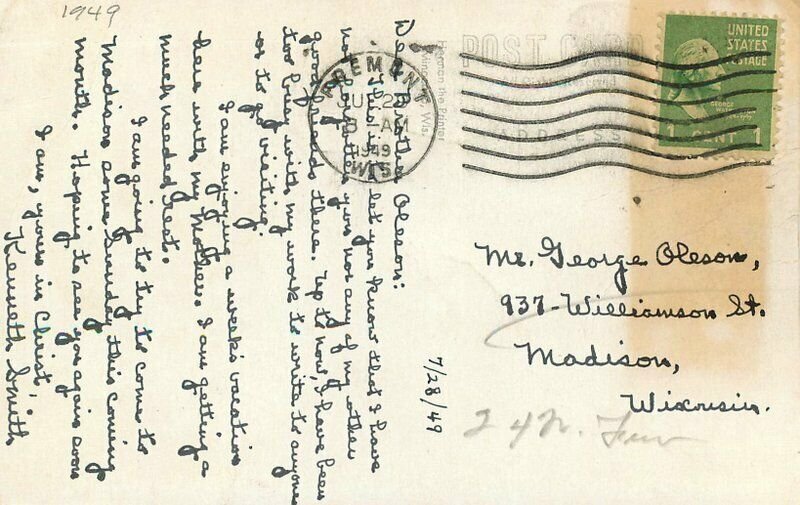 1949
Dear Brother Oleson:
This is to let you know that I have
not forgotten you nor any of my other
good friends there. Up to now, I have been
too busy with my work to write to anyone
or to go visiting.
I am enjoying a week's vacation
here with my Mother. I am getting a
much needed rest.
I am going to try to come to
Madison some Sunday this coming
month. Hoping to see you again soon
I am, yours in Christ,
Kenneth Smith
7/28/49
POST CARD
ADDRESS
FREMONT
8 AM
1949
WIS.
UNITED
STATES
POSTAGE
GEORGE
1 CENT 1
Mr. George Oleson,
937-Williamson St.
Madison,
Wisconsin.